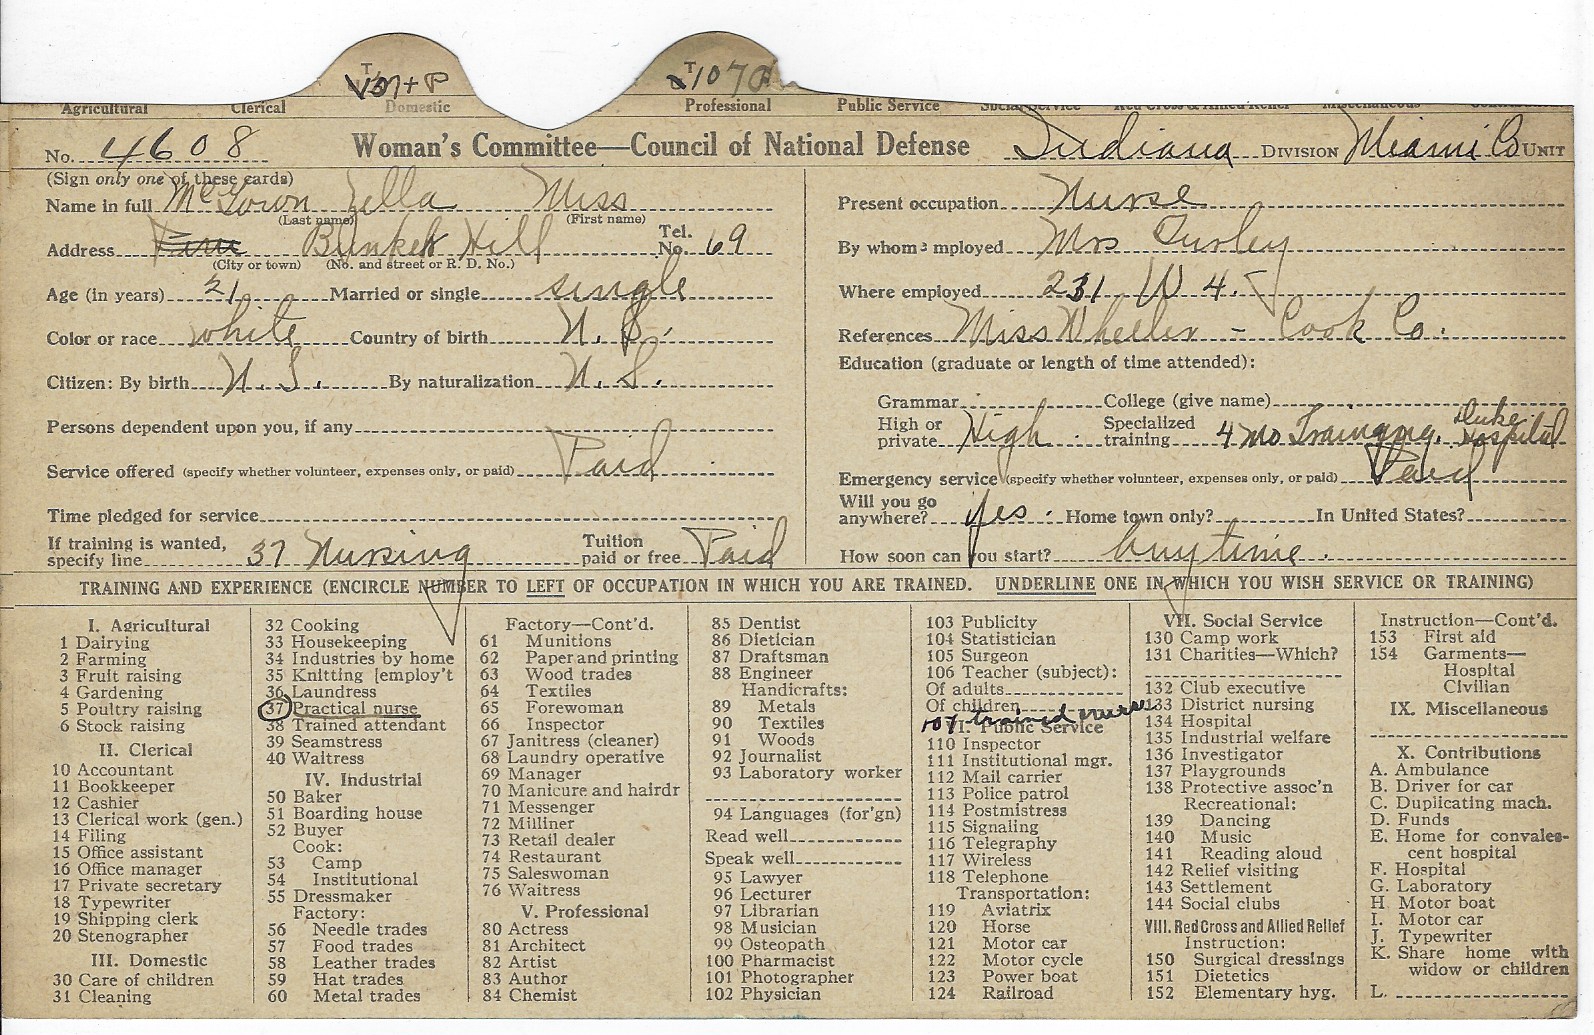 T 107 + P T 107 P
Agricultural Clerical Domestic Professional Public Service Social Service Red Cross & Allied Relief Miscellaneous
No. 4608 Woman's Committee—Council of National Defense Indiana DIVISION Miami Co UNIT
(Sign only one of these cards)
Name in full McGown Ella Miss
(Last name) (First name)
Address Peru Bunker Hill Tel. No. 69
(City or town) (No. and street or R. D. No.)
Age (in years) 21 Married or single single
Color or race white Country of birth U. S.
Citizen: By birth U. S. By naturalization U. S.
Persons dependent upon you, if any
Service offered (specify whether volunteer, expenses only, or paid) Paid
Time pledged for service
If training is wanted, specify line 37 Nursing Tuition paid or free Paid
Present occupation Nurse
By whom employed Mrs
Where employed 231 W 4.
References Miss Wheeler - Cook Co.
Education (graduate or length of time attended):
Grammar College (give name)
High or private High Specialized training 4 mo Training. Duke Hospital
Emergency service (specify whether volunteer, expenses only, or paid) Paid
Will you go anywhere? yes. Home town only? In United States?
How soon can you start? any time.
TRAINING AND EXPERIENCE (ENCIRCLE NUMBER TO LEFT OF OCCUPATION IN WHICH YOU ARE TRAINED. UNDERLINE ONE IN WHICH YOU WISH SERVICE OR TRAINING)
I. Agricultural
1 Dairying
2 Farming
3 Fruit raising
4 Gardening
5 Poultry raising
6 Stock raising
II. Clerical
10 Accountant
11 Bookkeeper
12 Cashier
13 Clerical work (gen.)
14 Filing
15 Office assistant
16 Office manager
17 Private secretary
18 Typewriter
19 Shipping clerk
20 Stenographer
III. Domestic
30 Care of children
31 Cleaning
32 Cooking
33 Housekeeping
34 Industries by home
35 Knitting [employ't
36 Laundress
37 Practical nurse
38 Trained attendant
39 Seamstress
40 Waitress
IV. Industrial
50 Baker
51 Boarding house
52 Buyer
Cook:
53 Camp
54 Institutional
55 Dressmaker
Factory:
56 Needle trades
57 Food trades
58 Leather trades
59 Hat trades
60 Metal trades
Factory—Cont'd.
61 Munitions
62 Paper and printing
63 Wood trades
64 Textiles
65 Forewoman
66 Inspector
67 Janitress (cleaner)
68 Laundry operative
69 Manager
70 Manicure and hairdr
71 Messenger
72 Milliner
73 Retail dealer
74 Restaurant
75 Saleswoman
76 Waitress
V. Professional
80 Actress
81 Architect
82 Artist
83 Author
84 Chemist
85 Dentist
86 Dietician
87 Draftsman
88 Engineer
Handicrafts:
89 Metals
90 Textiles
91 Woods
92 Journalist
93 Laboratory worker
94 Languages (for'gn)
Read well
Speak well
95 Lawyer
96 Lecturer
97 Librarian
98 Musician
99 Osteopath
100 Pharmacist
101 Photographer
102 Physician
103 Publicity
104 Statistician
105 Surgeon
106 Teacher (subject):
Of adults
Of children
107 trained nurse
VI. Public Service
110 Inspector
111 Institutional mgr.
112 Mail carrier
113 Police patrol
114 Postmistress
115 Signaling
116 Telegraphy
117 Wireless
118 Telephone
Transportation:
119 Aviatrix
120 Horse
121 Motor car
122 Motor cycle
123 Power boat
124 Railroad
VII. Social Service
130 Camp work
131 Charities—Which?
132 Club executive
133 District nursing
134 Hospital
135 Industrial welfare
136 Investigator
137 Playgrounds
138 Protective assoc'n
Recreational:
139 Dancing
140 Music
141 Reading aloud
142 Relief visiting
143 Settlement
144 Social clubs
VIII. Red Cross and Allied Relief
Instruction:
150 Surgical dressings
151 Dietetics
152 Elementary hyg.
Instruction—Cont'd.
153 First aid
154 Garments—
Hospital
Civilian
IX. Miscellaneous
X. Contributions
A. Ambulance
B. Driver for car
C. Duplicating mach.
D. Funds
E. Home for convales-
cent hospital
F. Hospital
G. Laboratory
H. Motor boat
I. Motor car
J. Typewriter
K. Share home with
widow or children
L.